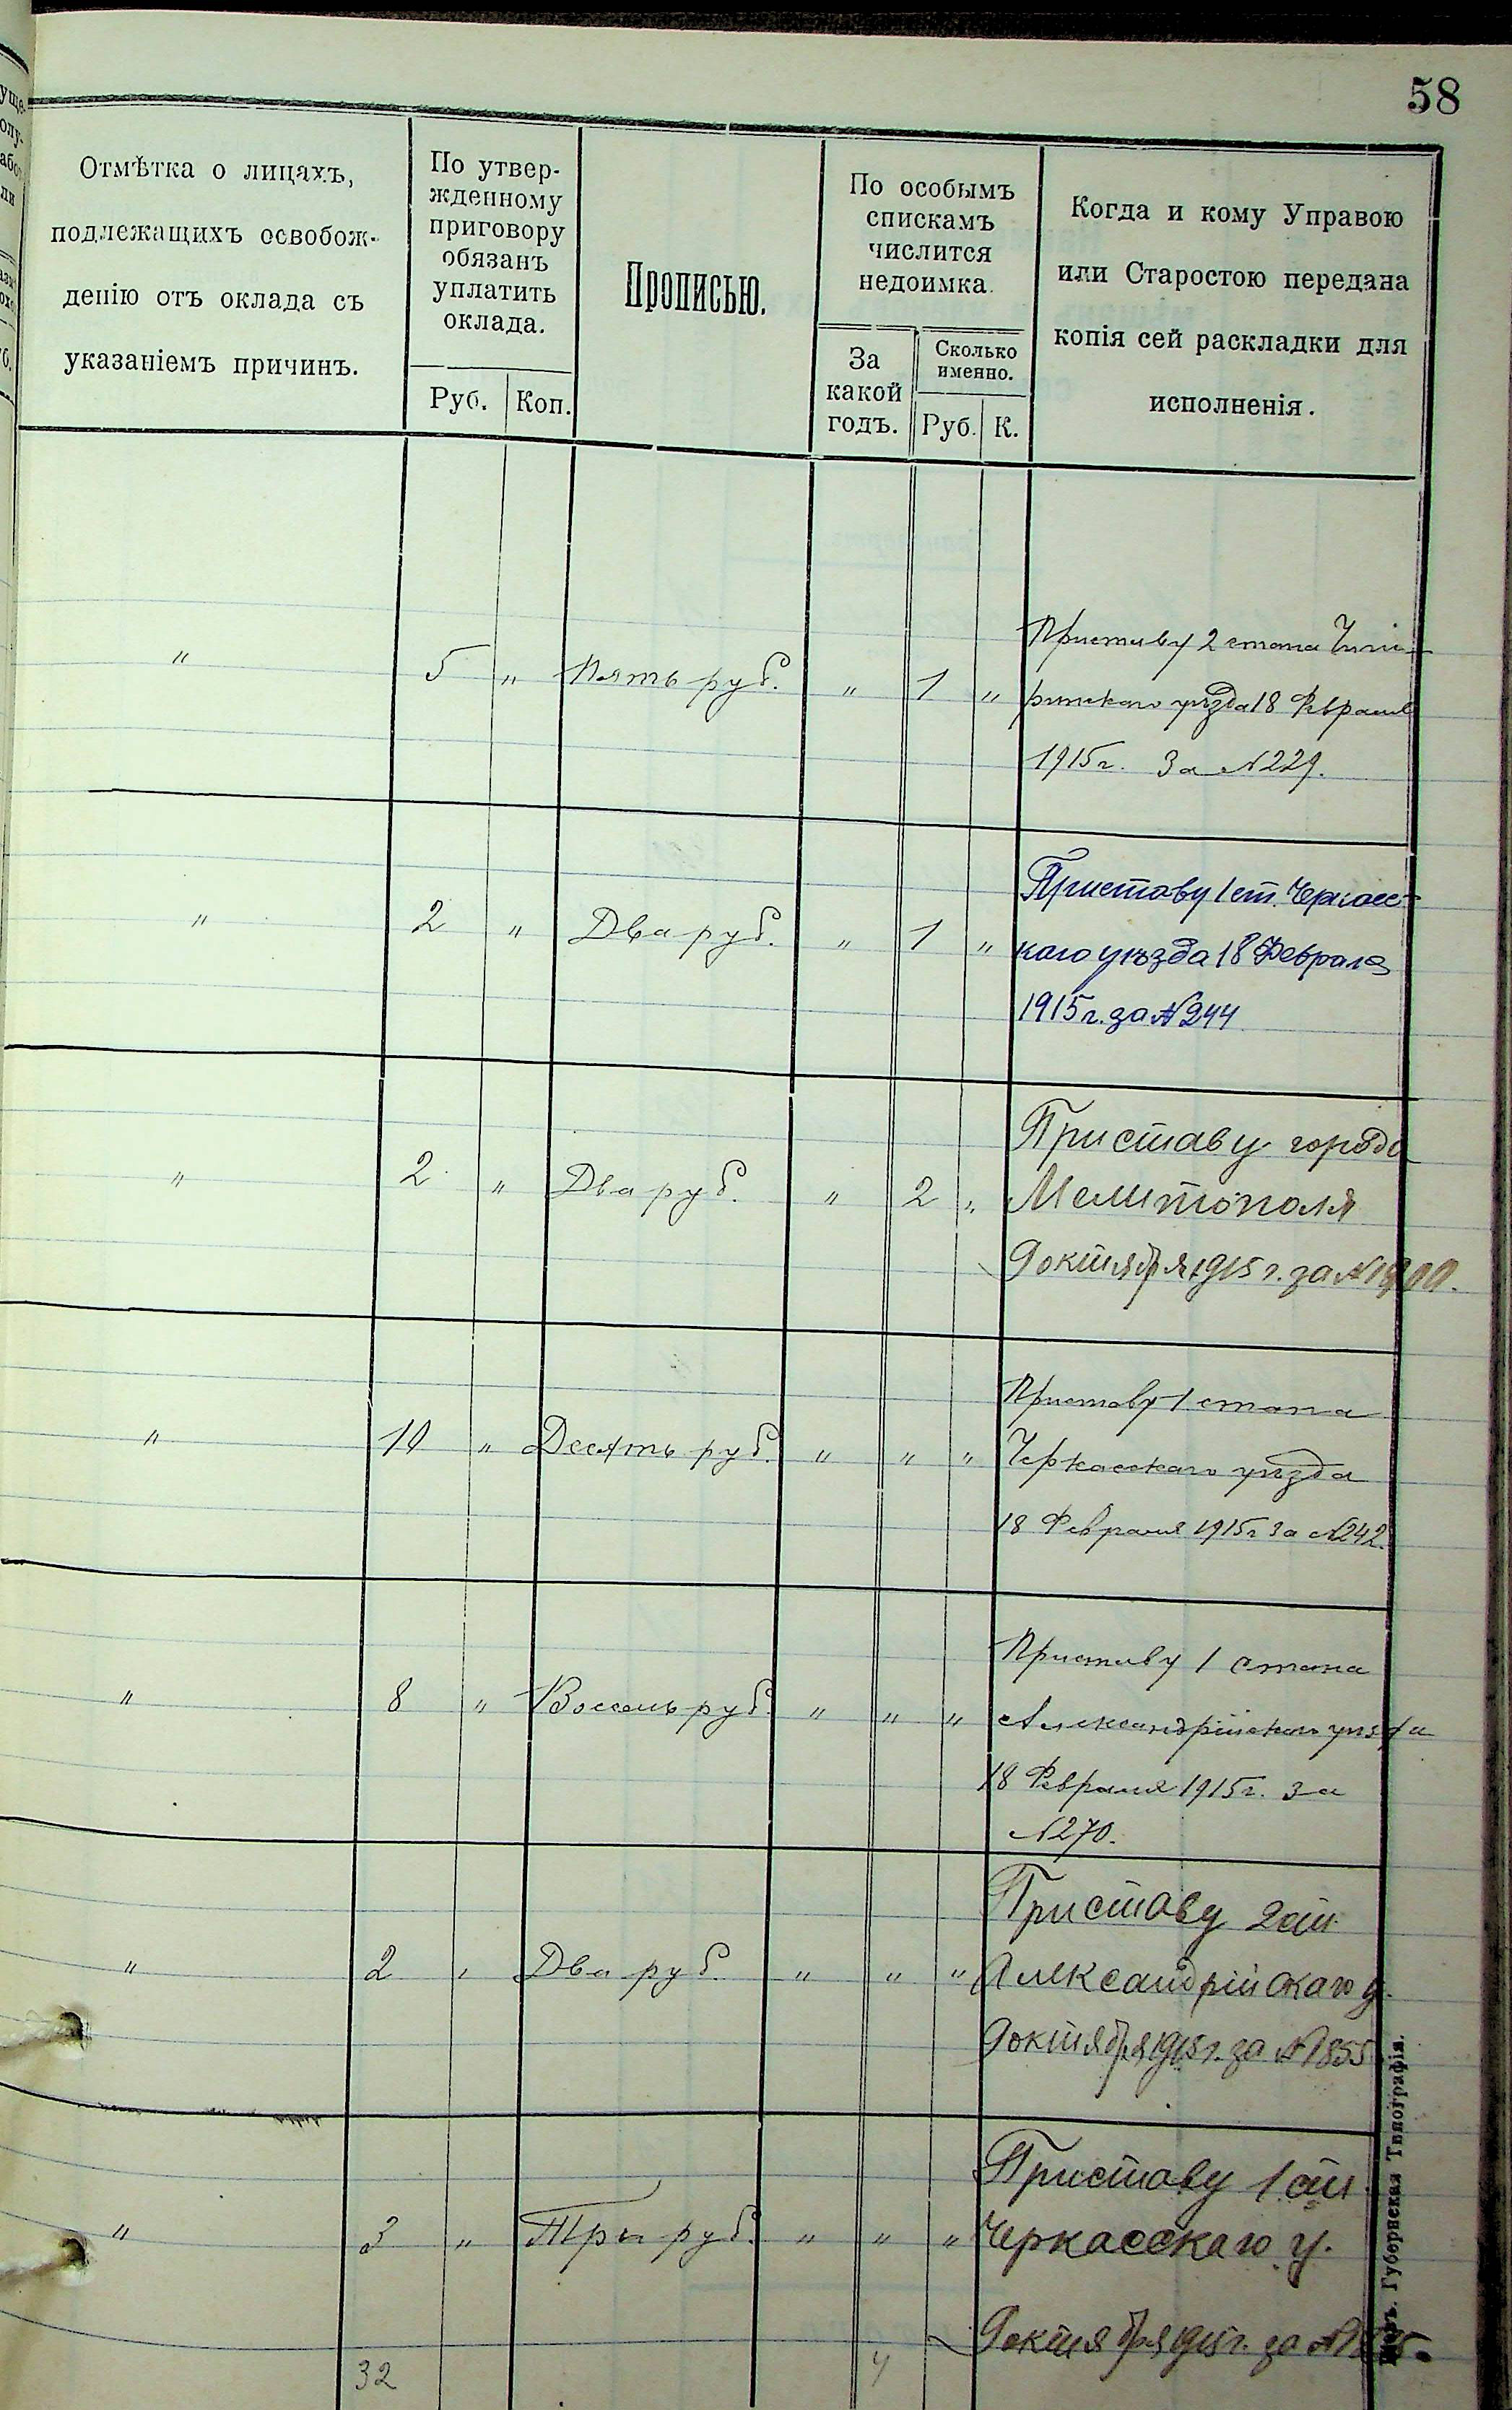 58
Отмѣтка о лицахъ,
подлежащихъ освобож-
денію отъ оклада съ
указаніемъ причинъ.
По утвер-
жденному
приговору
обязанъ
уплатить
оклада.
Руб. Коп.
Прописью.
По особымъ
спискамъ
числится
недоимка.
За
какой
годъ.
Сколько
именно.
Руб. К.
Когда и кому Управою
или Старостою передана
копія сей раскладки для
исполненія.
Приставу 2 стана Чиги-
" 5 " Пять руб. " 1 " ринскаго уѣзда 18 Февраля
1915 г. За N 229.
Приставу 1 ст. Черкасс-
" 2 " Два руб. " 1 " каго уѣзда 18 Февраля
1915 г. за N 244
Приставу города
" 2 " Два руб. " 2 " Мелитополя
9 октября 1915 г. за N
Приставу 1 стана
" 10 " Десять руб. " " " Черкасскаго уѣзда
18 Февраля 1915 г За N 242.
Приставу 1 стана
" 8 " Восемь руб. " " " Александрійскаго уѣзда
18 Февраля 1915 г. За
N 270.
Приставу 2 ст.
" 2 " Два руб. " " " Александрійскаго у.
9 октября 1915 г. за N 1855
Приставу 1 ст.
" 3 " Три руб. " " " Черкасскаго у.
9 октября 1915 г. за N
32 4
Губернская Типографія.